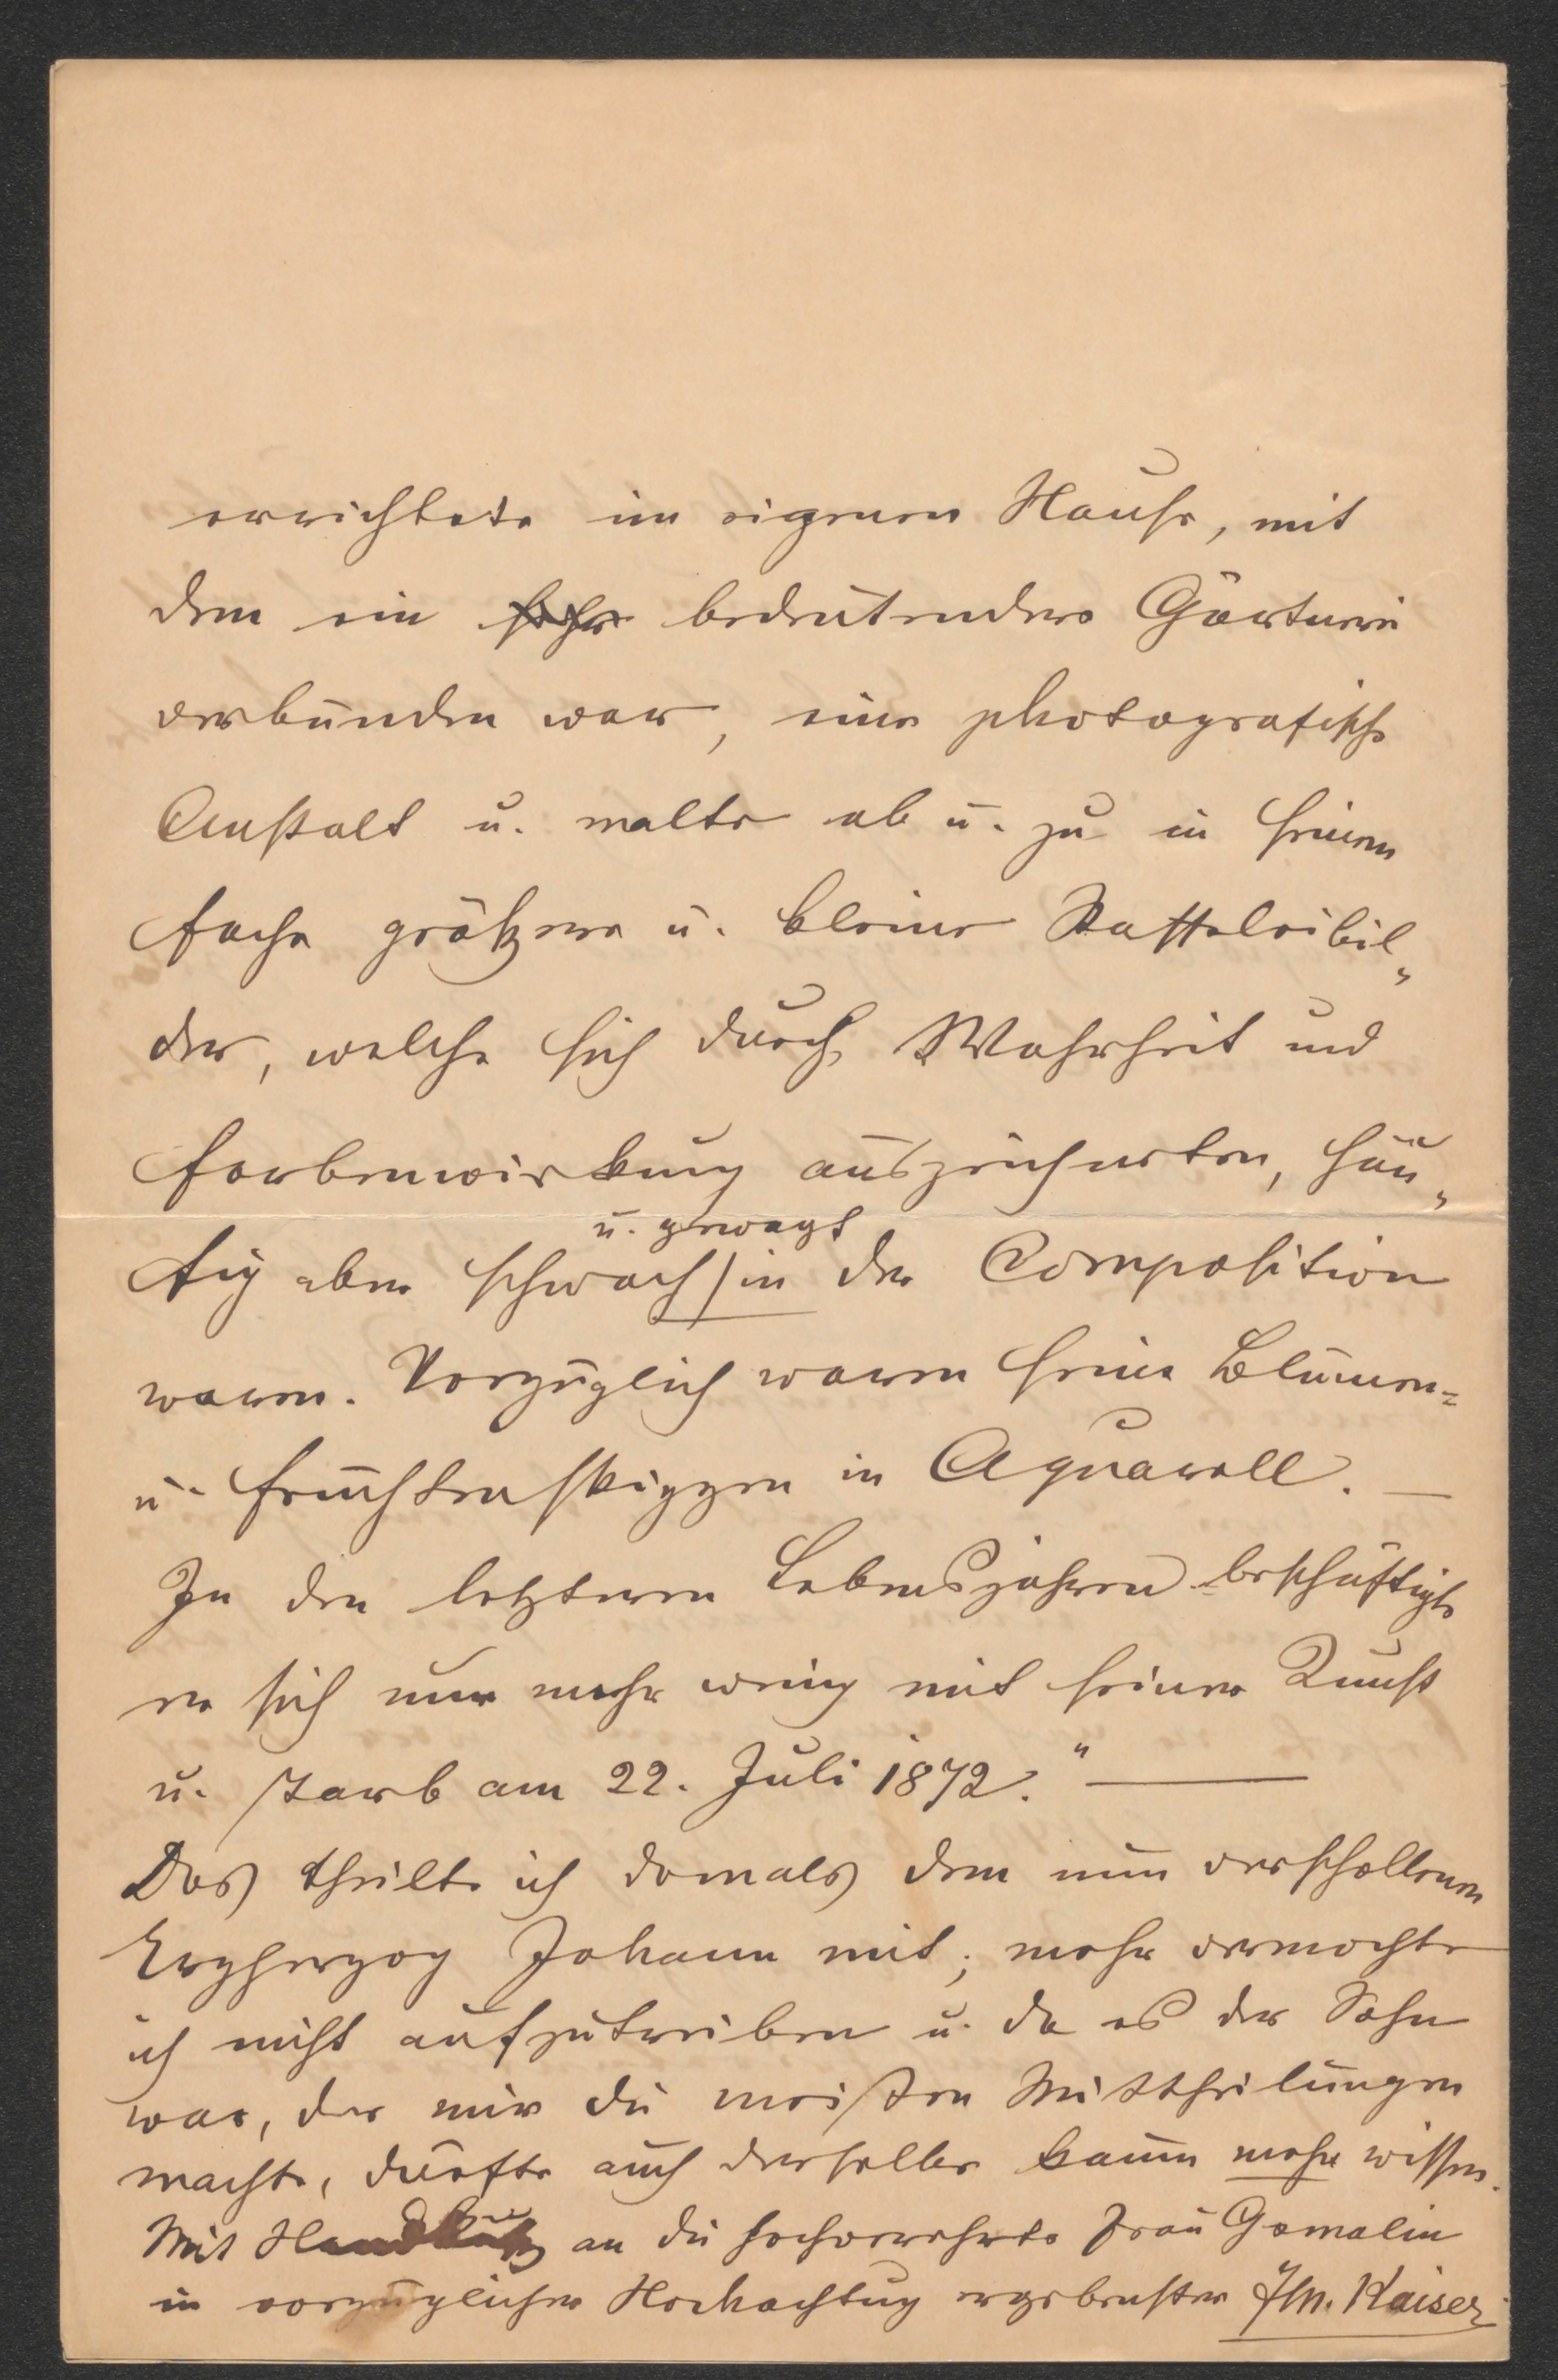 errichtete im eigenen Hause, mit
dem ein sehr bedeutendes Gärtnerei
verbunden war, eine photografische
Anstalt u. malte ab u. zu in seinem
Fache größere u. kleine Staffeleibil„
der, welche sich durch Wahrheit und
Farbenwirkung auszeichneten, häu„
fig aber schwach u. gewagt in der Composition
waren. Vorzüglich waren seine Blumen=
u. Früchtenskizzen in Aquarell. —
In den letzteren Lebensjahren beschäftigte
er sich nur mehr wenig mit seiner Kunst
u. starb am 22. Juli 1872." —
Das theilte ich damals dem nun verschollenen
Erzherzog Johann mit; mehr vermochte
ich nicht aufzutreiben u. da es der Sohn
war, der mir die meisten Mittheilungen
machte, dürfte auch derselbe kaum mehr wissen.
Mit Handkuß an die hochverehrte Frau Gemalin
in vorzüglicher Hochachtung ergebenster Jm. Kaiser